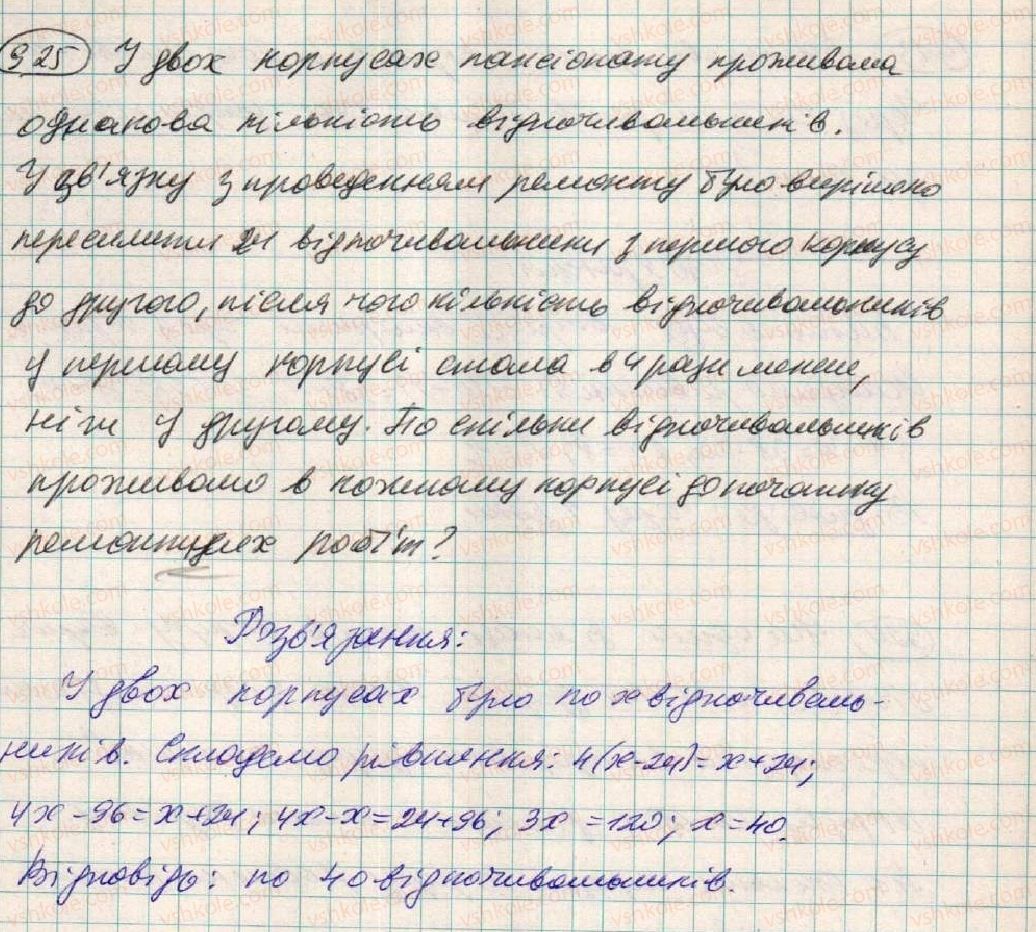 925 У двох корпусах пансіонату проживала
однакова кількість відпочивальників.
У зв'язку з проведенням ремонту було вирішено
переселити 24 відпочивальники з першого корпусу
до другого, після чого кількість відпочивальників
у першому корпусі стала в 4 рази менше,
ніж у другому. По скільки відпочивальників
проживало в кожному корпусі до початку
ремонтних робіт?
Розв'язання:
У двох корпусах було по х відпочиваль-
ників. Складемо рівняння: 4(х-24)=х+24;
4х-96=х+24; 4х-х=24+96; 3х=120; х=40.
Відповідь: по 40 відпочивальників.